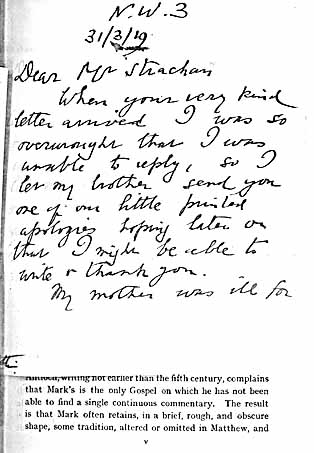 N.W.3
31/3/19
Dear Mr Strachan
When your very kind
letter arrived I was so
overwrought that I was
unable to reply, so I
let my brother send you
one of our little printed
apologies hoping later on
that I might be able to
write & thank you.
My mother was ill for
Antioch, writing not earlier than the fifth century, complains
that Mark's is the only Gospel on which he has not been
able to find a single continuous commentary. The result
is that Mark often retains, in a brief, rough, and obscure
shape, some tradition, altered or omitted in Matthew, and
v